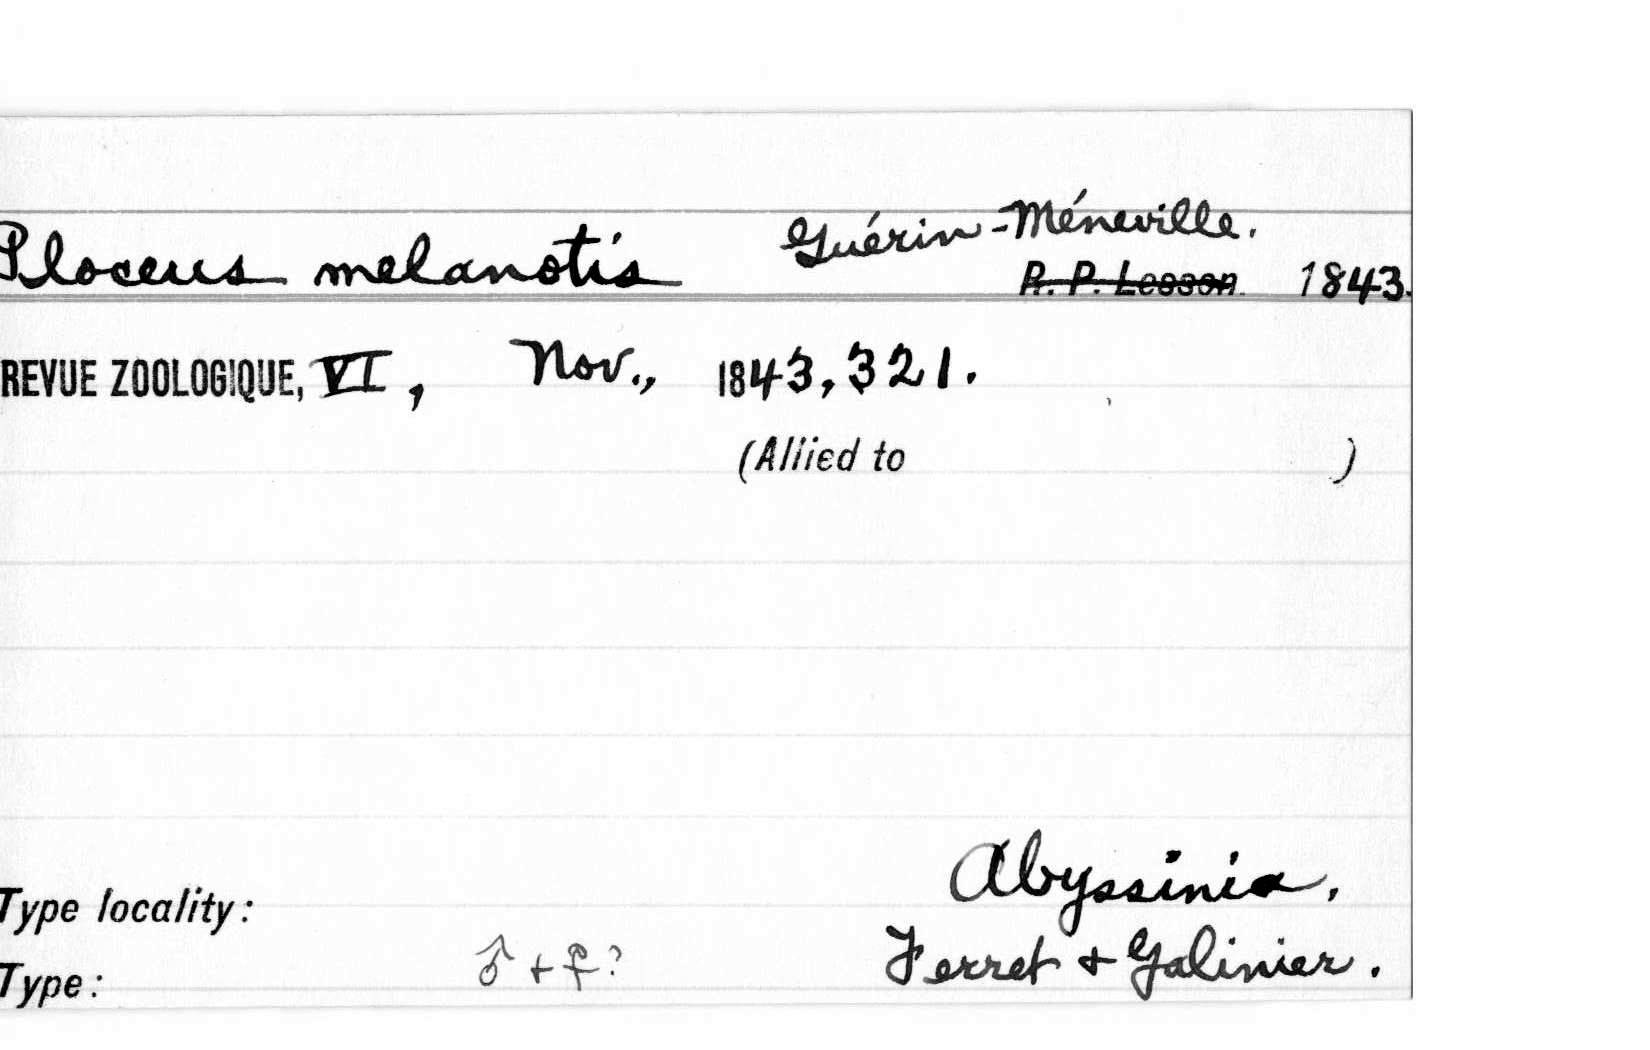 Guérin-Méneville.
Ploceus melanotis R. P. Lesson 1843.
REVUE ZOOLOGIQUE, VI, Nov., 1843, 321.
(Allied to )
Abyssinia,
Type locality:
Type: ♂ + ♀? Ferret + Galinier.